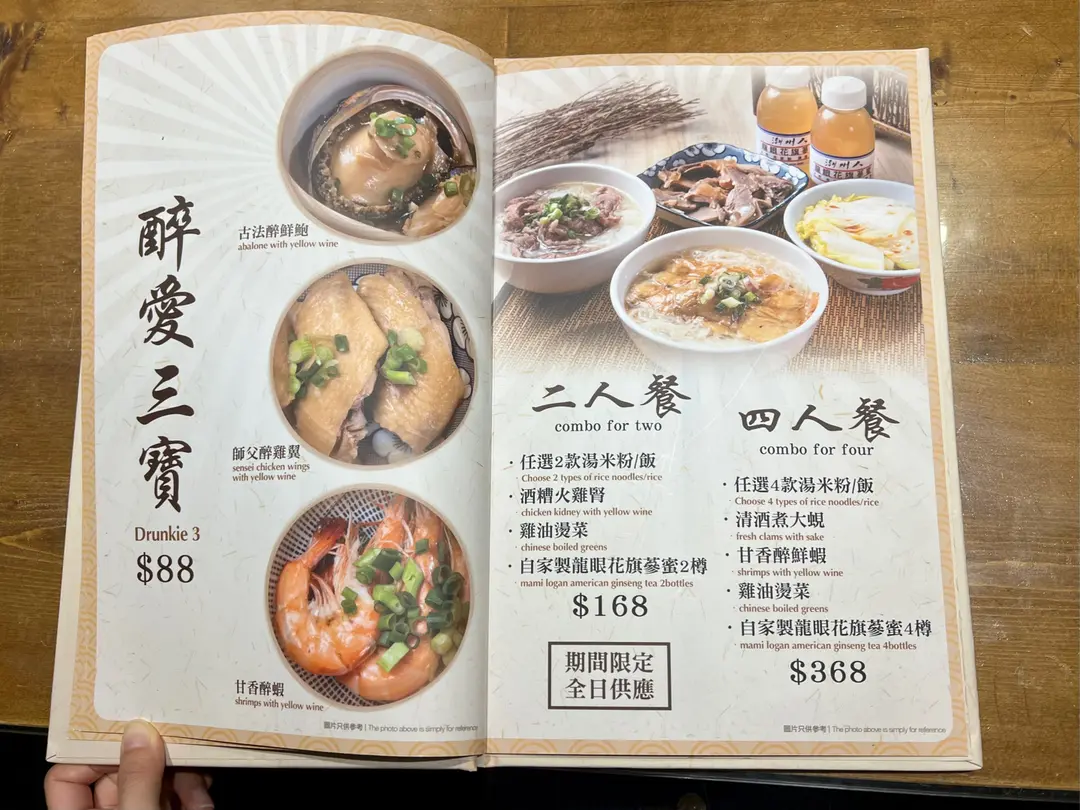 醉愛三寶
Drunkie 3
$88
古法醉鮮鮑
abalone with yellow wine
師父醉雞翼
sensei chicken wings
with yellow wine
甘香醉蝦
shrimps with yellow wine
圖片只供參考 | The photo above is simply for reference
潮州人
潮州人
二人餐
combo for two
· 任選2款湯米粉/飯
· Choose 2 types of rice noodles/rice
· 酒糟火雞腎
· chicken kidney with yellow wine
· 雞油燙菜
· chinese boiled greens
· 自家製龍眼花旗蔘蜜2樽
· mami logan american ginseng tea 2bottles
$168
期間限定
全日供應
四人餐
combo for four
· 任選4款湯米粉/飯
· Choose 4 types of rice noodles/rice
· 清酒煮大蜆
· fresh clams with sake
· 甘香醉鮮蝦
· shrimps with yellow wine
· 雞油燙菜
· chinese boiled greens
· 自家製龍眼花旗蔘蜜4樽
· mami logan american ginseng tea 4bottles
$368
圖片只供參考 | The photo above is simply for reference